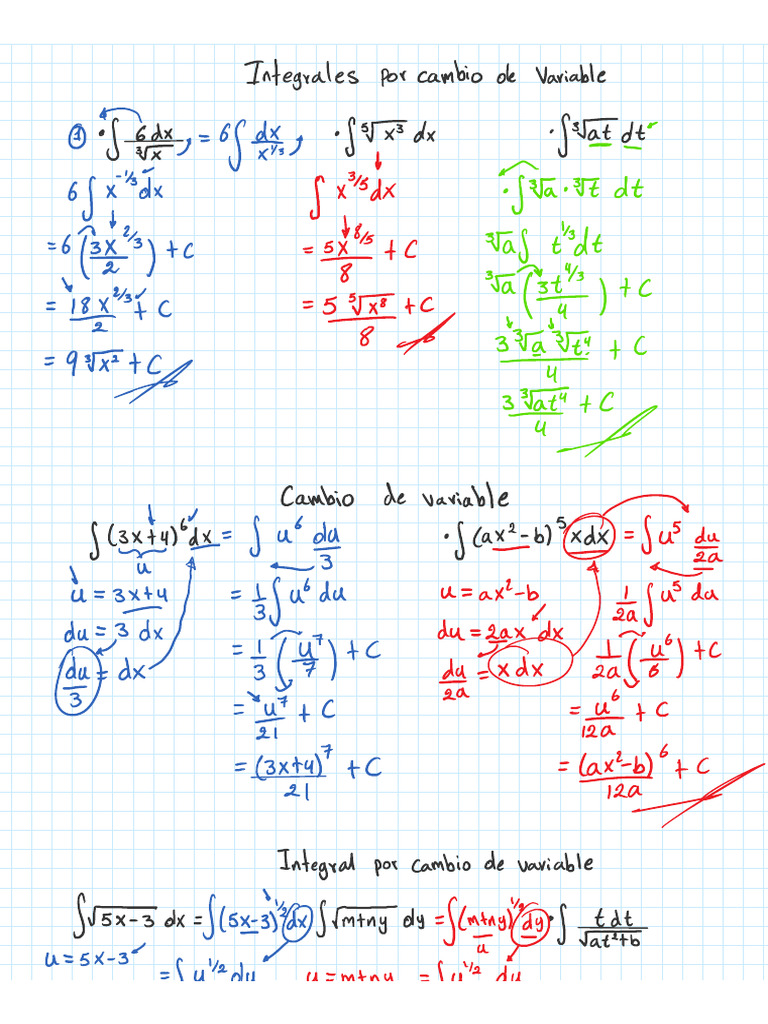 Integrales por cambio de Variable
① • ∫ 6dx/∛x = 6∫ dx/x^1/3
6∫ x^-1/3 dx
= 6 (3x^2/3 / 2) + C
= 18x^2/3 / 2 + C
= 9∛x² + C
• ∫ ⁵√x³ dx
∫ x^3/5 dx
= 5x^8/5 / 8 + C
= 5 ⁵√x⁸ / 8 + C
• ∫ ∛at dt
• ∫ ∛a • ∛t dt
∛a ∫ t^1/3 dt
∛a (3t^4/3 / 4) + C
3 ∛a ∛t⁴ / 4 + C
3 ∛at⁴ / 4 + C
Cambio de variable
∫ (3x+4)⁶ dx = ∫ u⁶ du/3
u
u = 3x+4
du = 3 dx
du/3 = dx
= 1/3 ∫ u⁶ du
= 1/3 (u⁷/7) + C
= u⁷/21 + C
= (3x+4)⁷/21 + C
• ∫ (ax²-b)⁵ xdx = ∫ u⁵ du/2a
u = ax²-b
du = 2ax dx
du/2a = x dx
1/2a ∫ u⁵ du
1/2a (u⁶/6) + C
= u⁶/12a + C
= (ax²-b)⁶/12a + C
Integral por cambio de variable
∫ √5x-3 dx = ∫ (5x-3)^1/2 dx
u = 5x-3
= ∫ u^1/2 du
∫ √m+ny dy = ∫ (m+ny)^1/2 dy
u
u = m+ny = ∫ u^1/2 du
• ∫ tdt/√at²+b